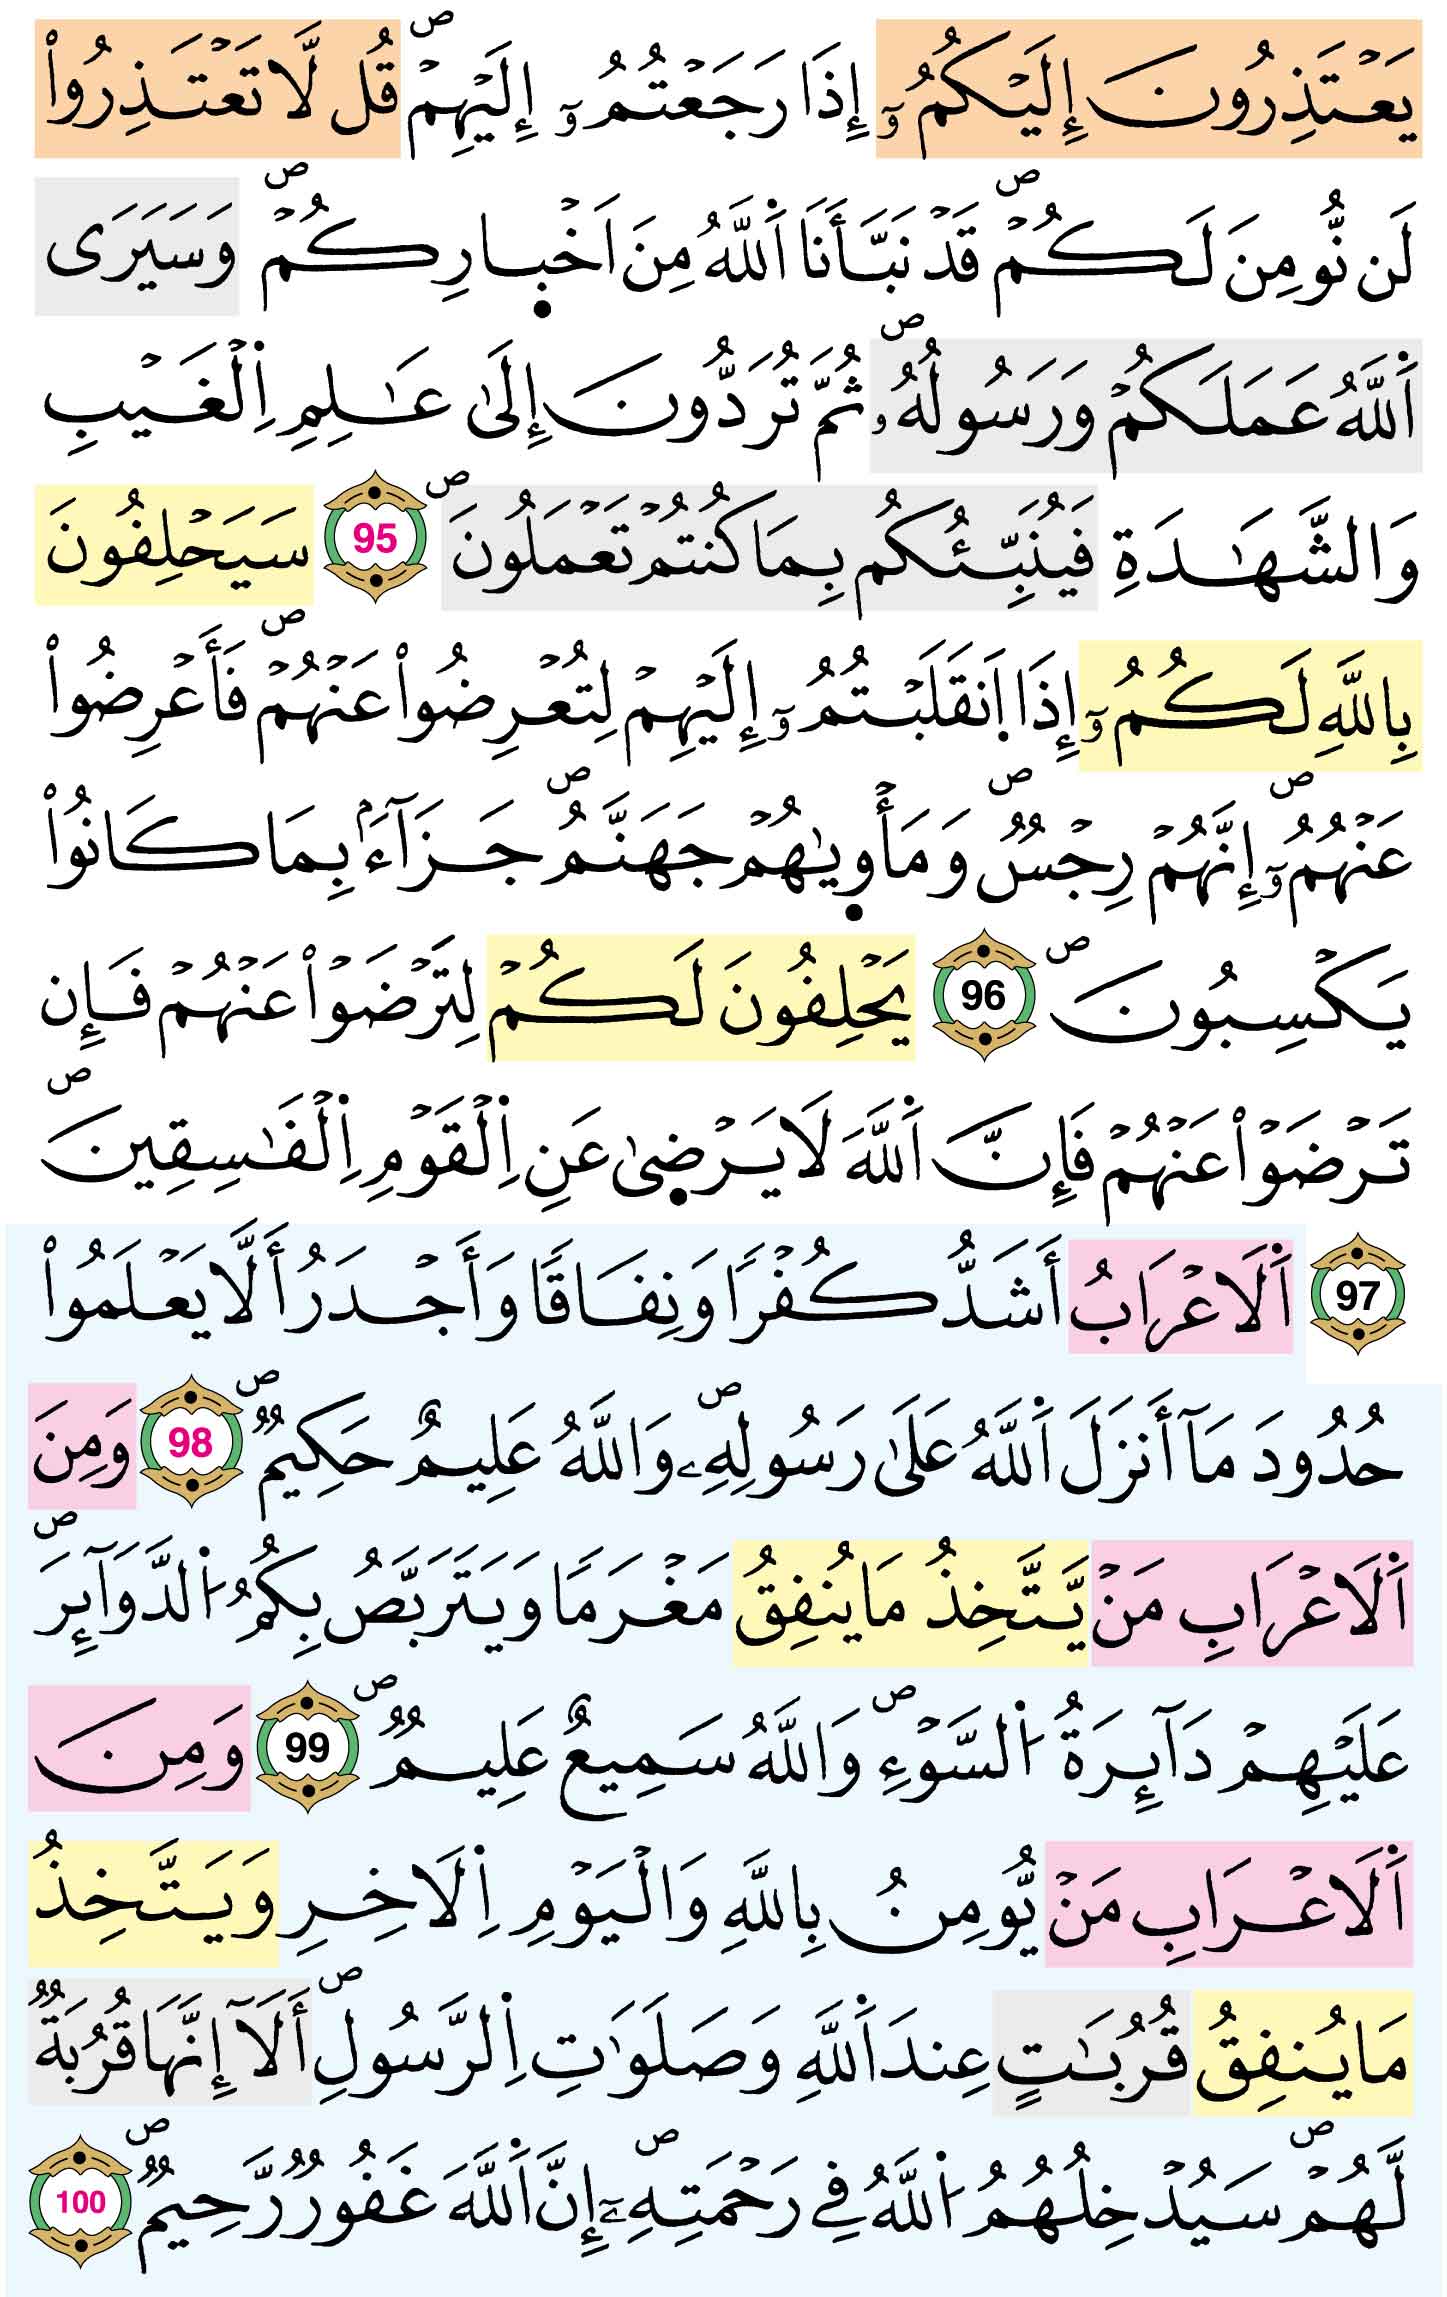 يَعْتَذِرُونَ إِلَيْكُمُۥٓ إِذَا رَجَعْتُمُۥٓ إِلَيْهِمْۖ قُل لَّا تَعْتَذِرُواْ
لَن نُّومِنَ لَكُمْۖ قَدْ نَبَّأَنَا اَ۬للَّهُ مِنَ اَخْب۪ارِكُمْۖ وَسَيَرَى
اَ۬للَّهُ عَمَلَكُمْ وَرَسُولُهُۥۖ ثُمَّ تُرَدُّونَ إِلَىٰ عَٰلِمِ اِ۬لْغَيْبِ
وَالشَّهَٰدَةِ فَيُنَبِّئُكُم بِمَا كُنتُمْ تَعْمَلُونَۖ 95 سَيَحْلِفُونَ
بِاللَّهِ لَكُمُۥٓ إِذَا اَ۪نقَلَبْتُمُۥٓ إِلَيْهِمْ لِتُعْرِضُواْ عَنْهُمْۖ فَأَعْرِضُواْ
عَنْهُمُۥٓۖ إِنَّهُمْ رِجْسٌۖ وَمَأْو۪يٰهُمْ جَهَنَّمُۖ جَزَآءَۢ بِمَا كَانُواْ
يَكْسِبُونَۖ 96 يَحْلِفُونَ لَكُمْ لِتَرْضَوْاْ عَنْهُمْ فَإِن
تَرْضَوْاْ عَنْهُمْ فَإِنَّ اَ۬للَّهَ لَا يَرْض۪ىٰ عَنِ اِ۬لْقَوْمِ اِ۬لْفَٰسِقِينَۖ
97 اَ۬لَاعْرَابُ أَشَدُّ كُفْرًا وَنِفَاقًا وَأَجْدَرُ أَلَّا يَعْلَمُواْ
حُدُودَ مَآ أَنزَلَ اَ۬للَّهُ عَلَىٰ رَسُولِهِۦۖ وَاللَّهُ عَلِيمٌ حَكِيمٌۖ 98 وَمِنَ
اَ۬لَاعْرَابِ مَنْ يَّتَّخِذُ مَا يُنفِقُ مَغْرَمًا وَيَتَرَبَّصُ بِكُمُ اُ۬لدَّوَآئِرَۖ
عَلَيْهِمْ دَآئِرَةُ اُ۬لسَّوْءِۖ وَاللَّهُ سَمِيعٌ عَلِيمٌۖ 99 وَمِنَ
اَ۬لَاعْرَابِ مَنْ يُّومِنُ بِاللَّهِ وَالْيَوْمِ اِ۬لَاخِرِ وَيَتَّخِذُ
مَا يُنفِقُ قُرُبَٰتٍ عِندَ اَ۬للَّهِ وَصَلَوَٰتِ اِ۬لرَّسُولِۖ أَلَآ إِنَّهَا قُرُبَةٌ
لَّهُمْۖ سَيُدْخِلُهُمُ اُ۬للَّهُ فِے رَحْمَتِهِۦٓۖ إِنَّ اَ۬للَّهَ غَفُورٌ رَّحِيمٌۖ 100